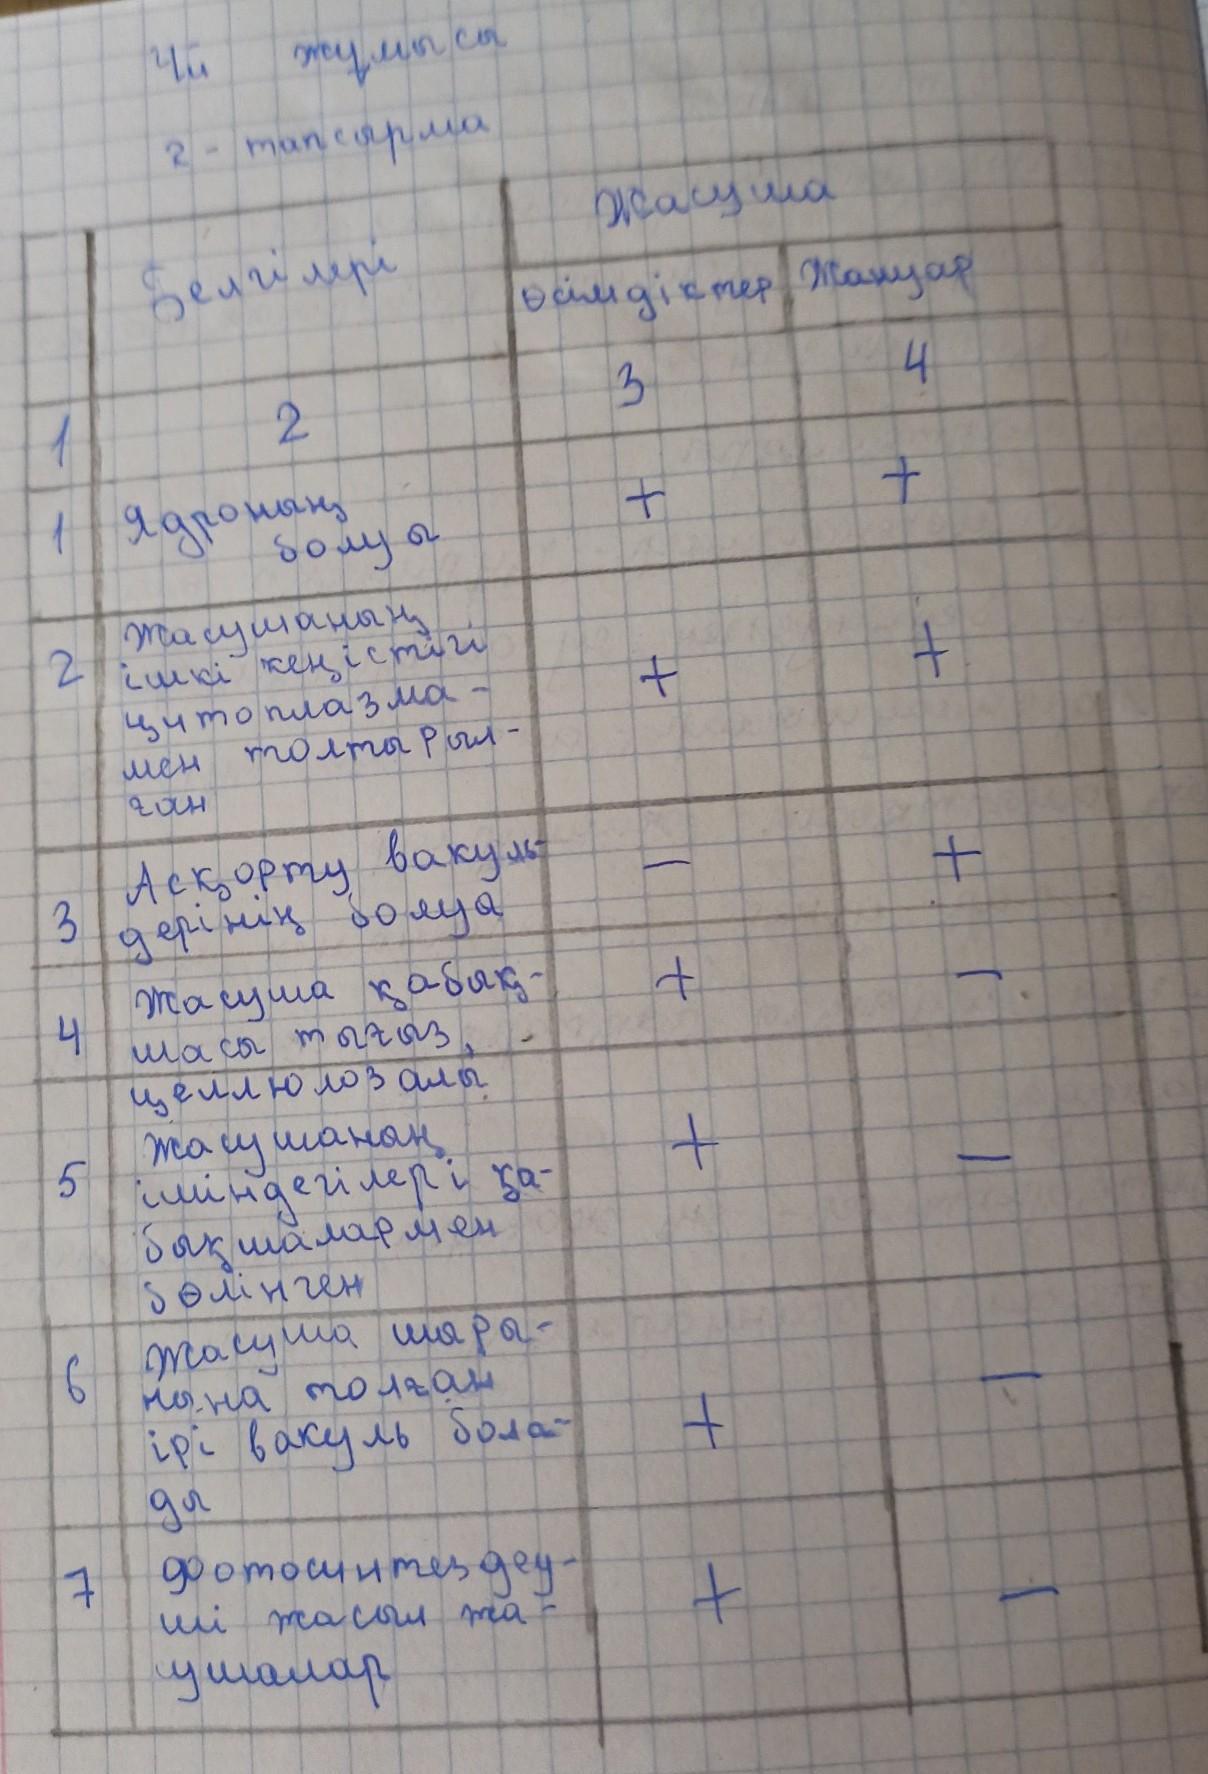 Үй жұмысы
2 - тапсырма
Белгілері
Жасуша
өсімдіктер Жануар
1 2 3 4
1 Ядроның + +
болуы
2 Жасушаның + +
ішкі кеңістігі
цитоплазма-
мен толтырыл-
ған
3 Асқорту вакуль- - +
дерінің болуа
4 Жасуша қабық- + -
шасы тығыз,
целлюлозалы
5 Жасушаның + -
ішіндегілері қа-
бықшалармен
бөлінген
6 Жасуша шыры- + -
нына толған
ірі вакуль бола-
ды
7 Фотосинтездеу- + -
ші жасыл жа-
ушалар